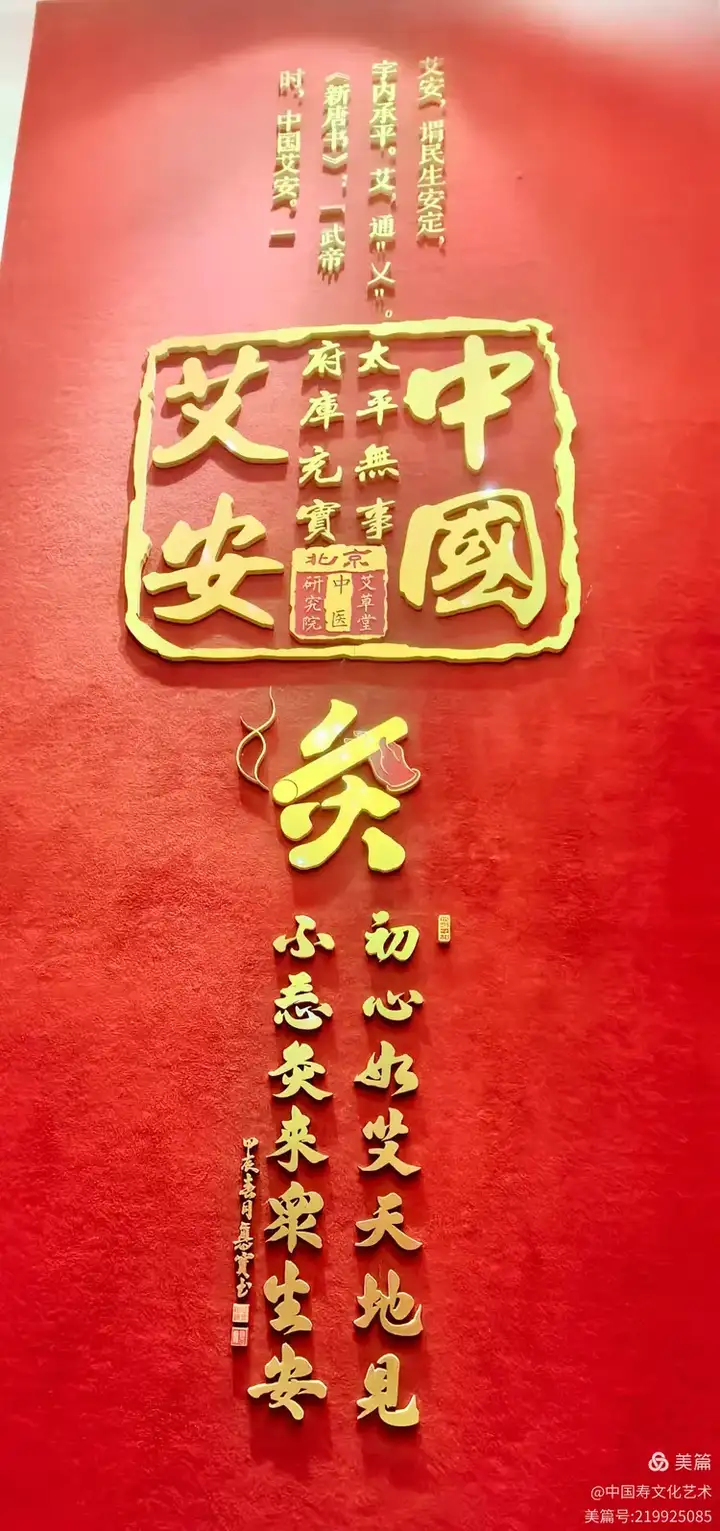 艾安，谓民生安定，
宇内承平。艾，通"乂"。
《新唐书》：「武帝
时，中国艾安。」
中國
太平無事
府庫充實
艾安
北京
艾草堂
中医
研究院
灸
初心如艾天地见
不忘灸来眾生安
甲辰春月
美篇
@中国寿文化艺术
美篇号:219925085